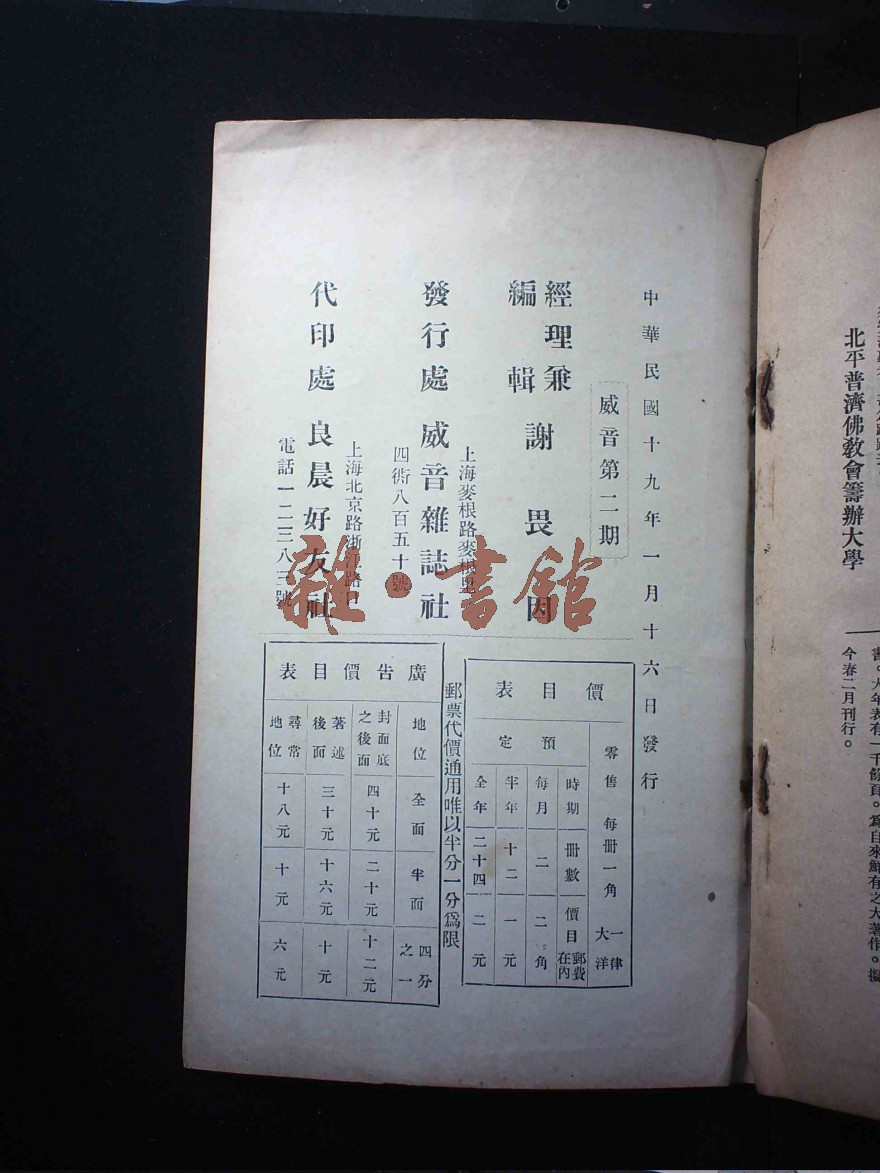 今春二月刊行。
書。大年表有一千餘頁。爲自來鮮有之大著作。擬
北平普濟佛敎會籌辦大學
中華民國十九年一月十六日發行
威音第二期
經理兼
編輯
謝畏因
發行處
威音雜誌社
上海麥根路麥根里
四衖八百五十號
代印處
良晨好友社
上海北京路浙江路口
電話一二三八三號
雜·書館
價目表
零售 每冊一角 一律大洋
預定
時期 冊數 價目 郵費在內
每月 二 二角
半年 十二 一元
全年 二十四 二元
郵票代價通用唯以半分一分爲限
廣告價目表
地位 全面 半面 四分之一
封面底之後面 四十元 二十元 十二元
著述後面 三十元 十六元 十元
尋常地位 十八元 十元 六元